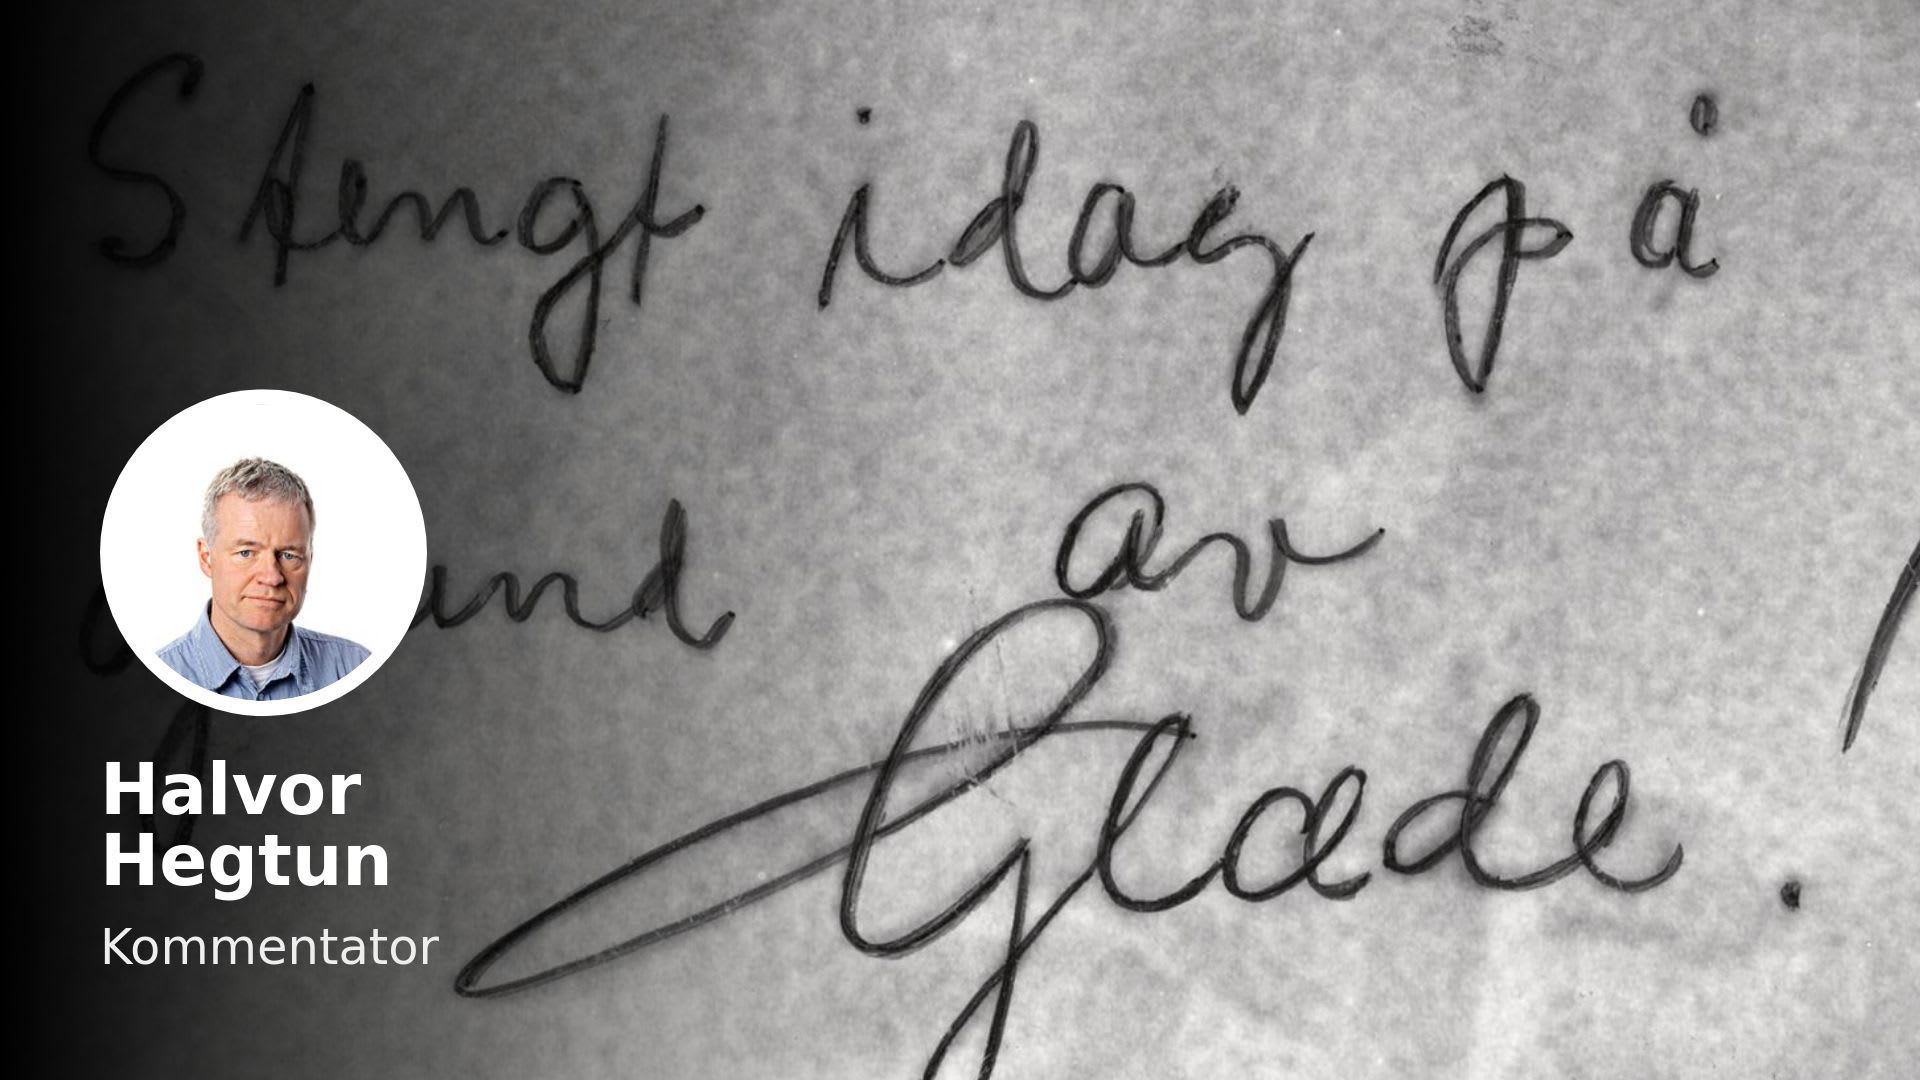 Stengt idag på
grund av
Glæde.
Halvor
Hegtun
Kommentator